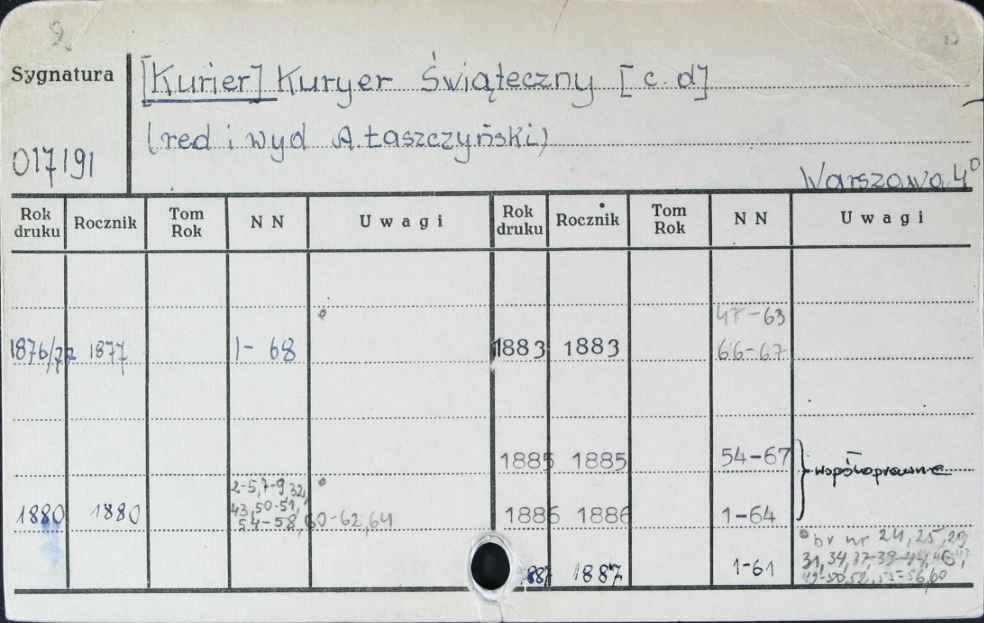 2
Sygnatura
[Kurier] Kuryer Świąteczny [c.d]
(red i wyd A. Łaszczyński)
017191
Warszawa 4°
Rok druku Rocznik Tom Rok N N Uwagi Rok druku Rocznik Tom Rok N N Uwagi
47-63
1876/77 1877 1-68 1883 1883 66-67
1885 1885 54-67 współoprawne
2-5, 7-9, 32,
43, 50-51,
1880 1880 54-58, 60-62, 64 1886 1886 1-64
br nr 24, 25, 29
1887 1887 1-61 31, 34, 37-39-44, 46,
49-50, 52, 55-56, 60